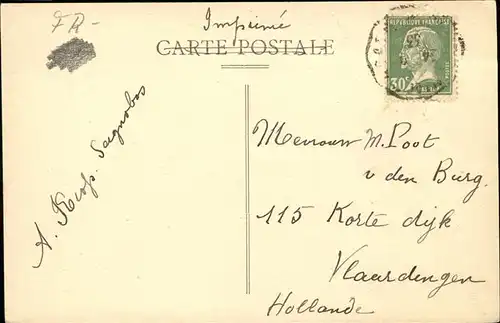 FR-
Imprimé
CARTE POSTALE
REPUBLIQUE FRANÇAISE
30c
POSTES
Mevrouw M. Poot
v den Burg.
115 Korte dijk
Vlaardingen
Hollande
A.